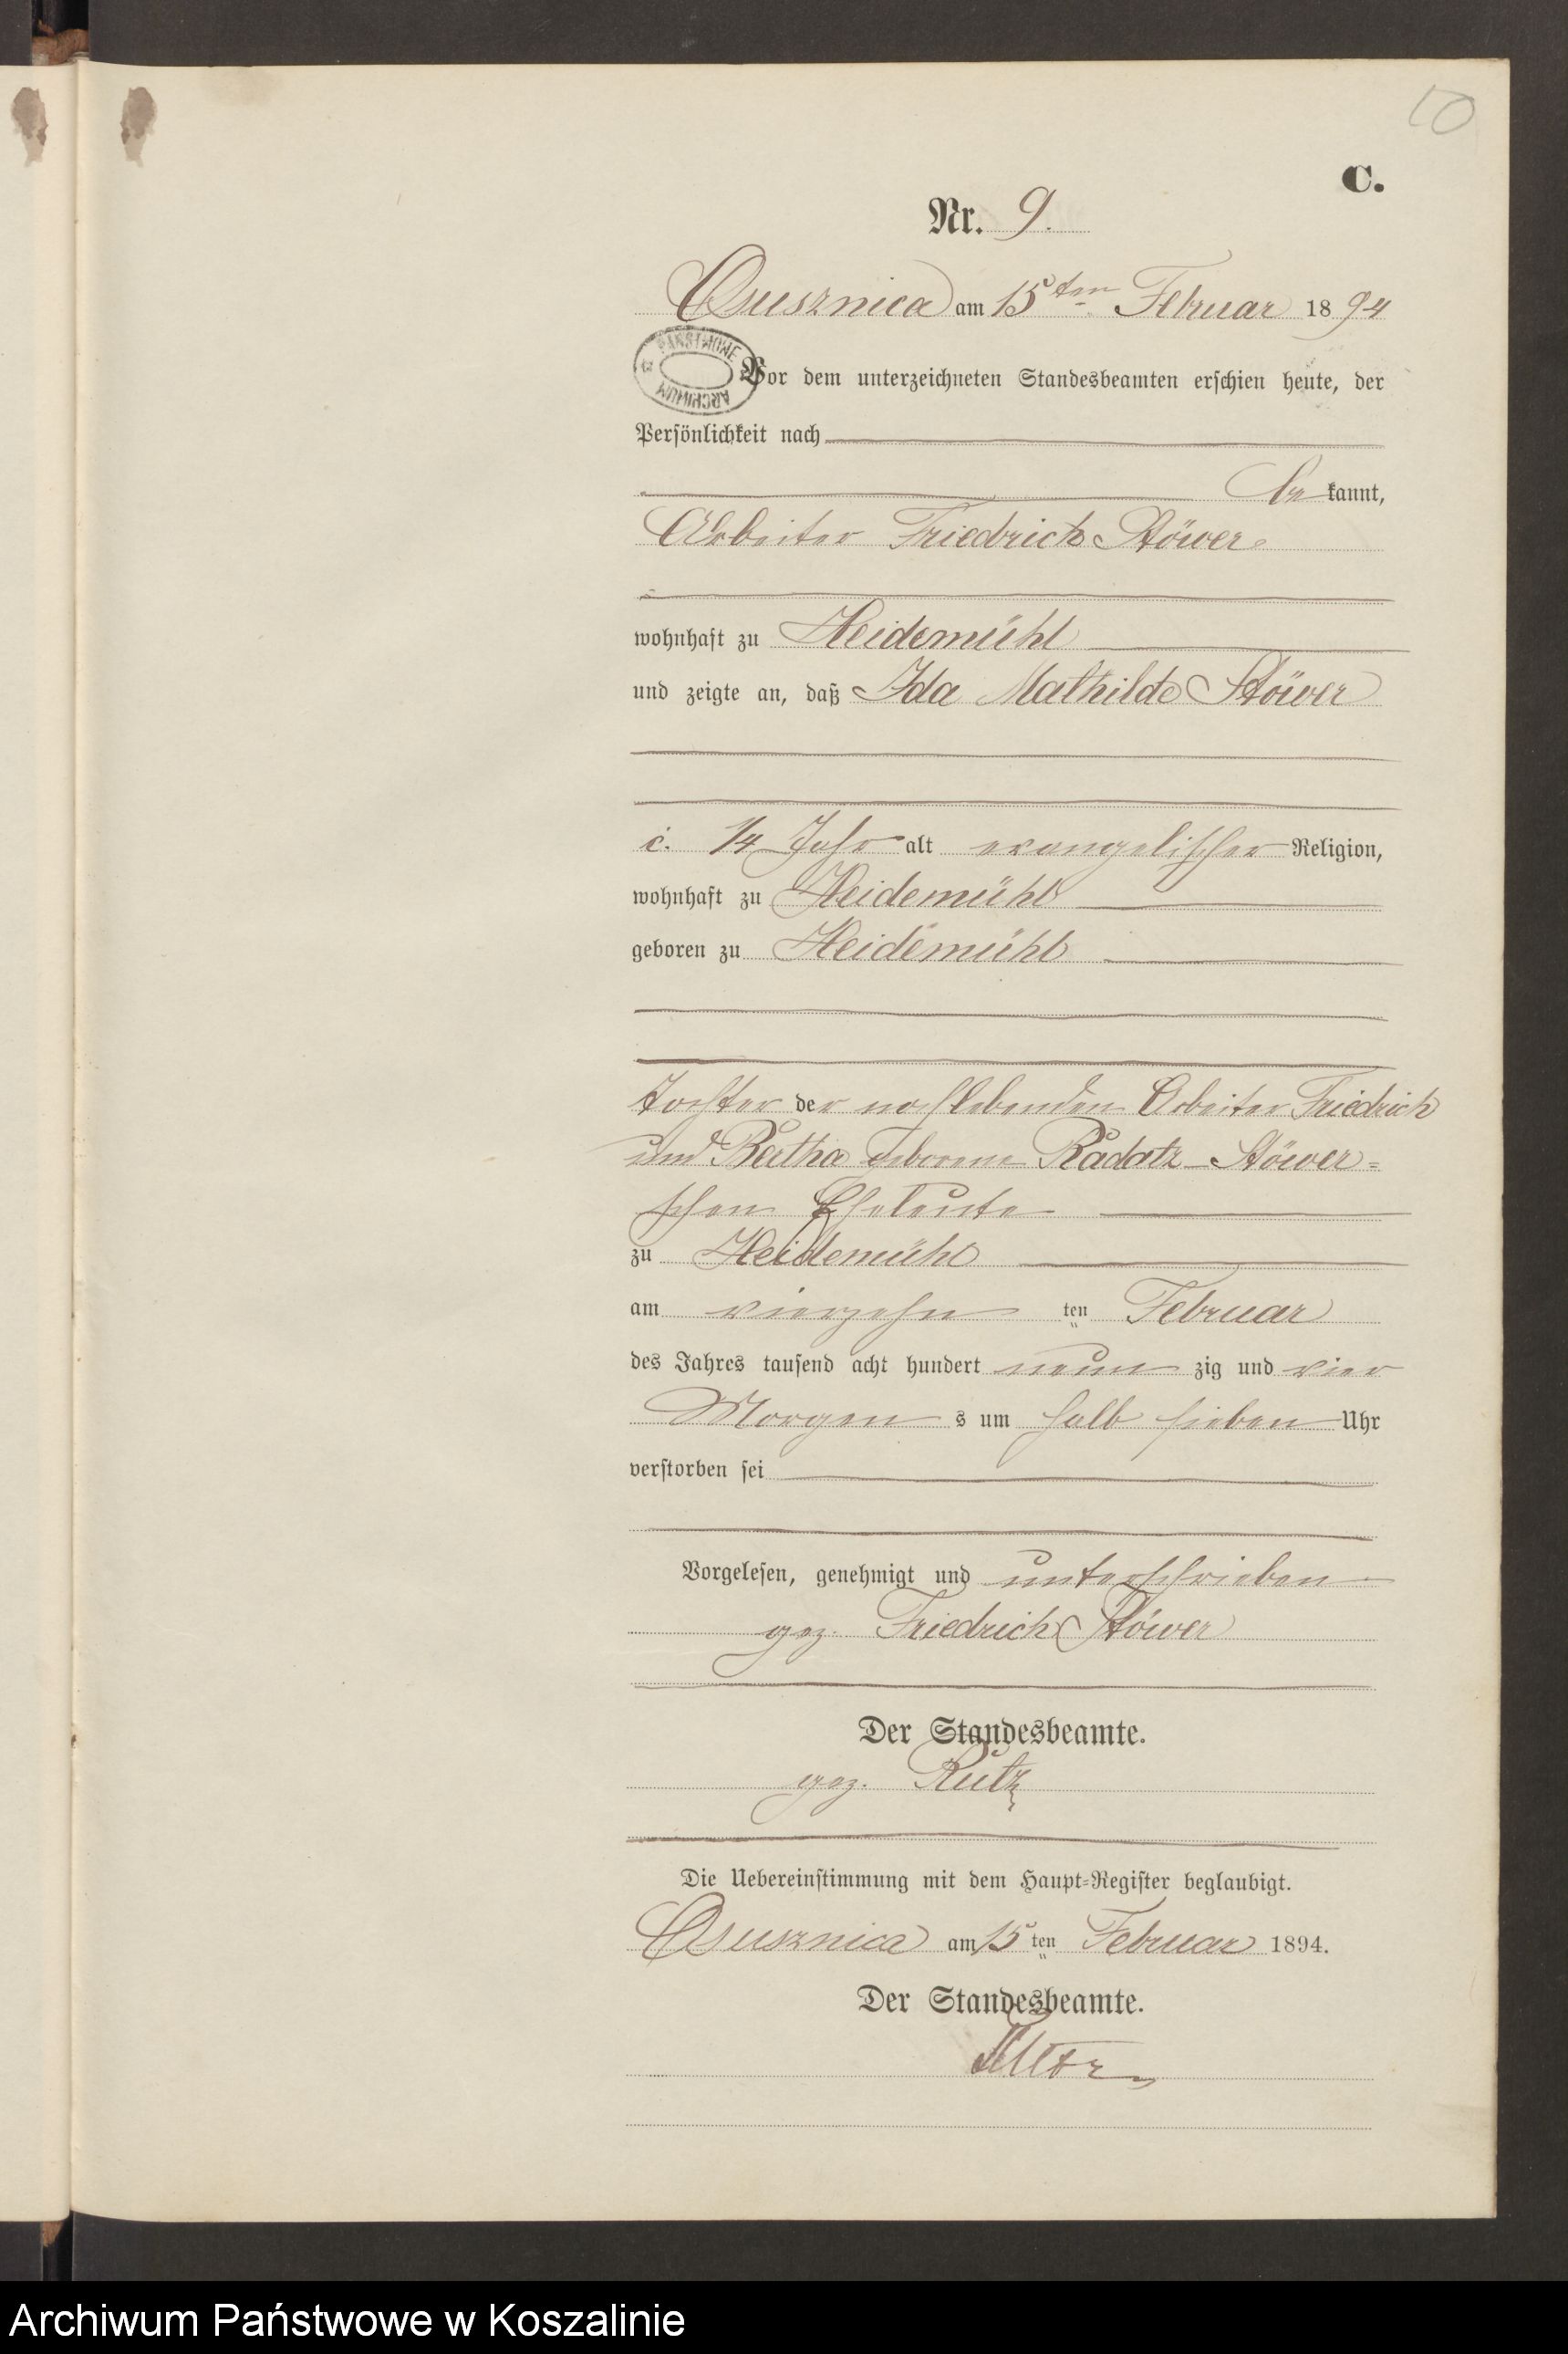 10
C.
Nr. 9.
Osusznica am 15ten Februar 1894
PAŃSTWOWE ARCHIWUM
Vor dem unterzeichneten Standesbeamten erschien heute, der
Persönlichkeit nach
be kannt,
Arbeiter Friedrich Stöwer
wohnhaft zu Heidemühl
und zeigte an, daß Ida Mathilde Stöwer
c. 1/4 Jahr alt evangelischer Religion,
wohnhaft zu Heidemühl
geboren zu Heidemühl
Tochter der noch lebenden Arbeiter Friedrich
und Bertha geborene Radatz-Stöwer=
schen Eheleute
zu Heidemühl
am vierzehn ten Februar
des Jahres tausend acht hundert neun zig und vier
Morgen s um halb sieben Uhr
verstorben sei
Vorgelesen, genehmigt und unterschrieben
gez. Friedrich Stöwer
Der Standesbeamte.
gez. Rutz
Die Uebereinstimmung mit dem Haupt=Register beglaubigt.
Osusznica am 15ten Februar 1894.
Der Standesbeamte.
Rutz
Archiwum Państwowe w Koszalinie